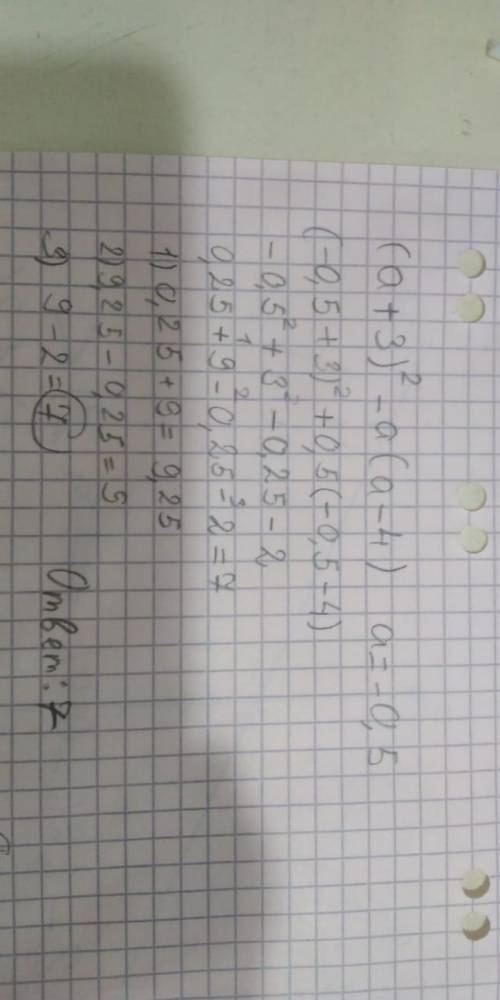 (a+3)² - a(a-4)   a = -0,5
(-0,5+3)² + 0,5(-0,5-4)
-0,5² + 3² - 0,25 - 2
0,25 +¹ 9 -² 0,25 -³ 2 = 7
1) 0,25 + 9 = 9,25
2) 9,25 - 0,25 = 9
3) 9 - 2 = 7   Ответ: 7